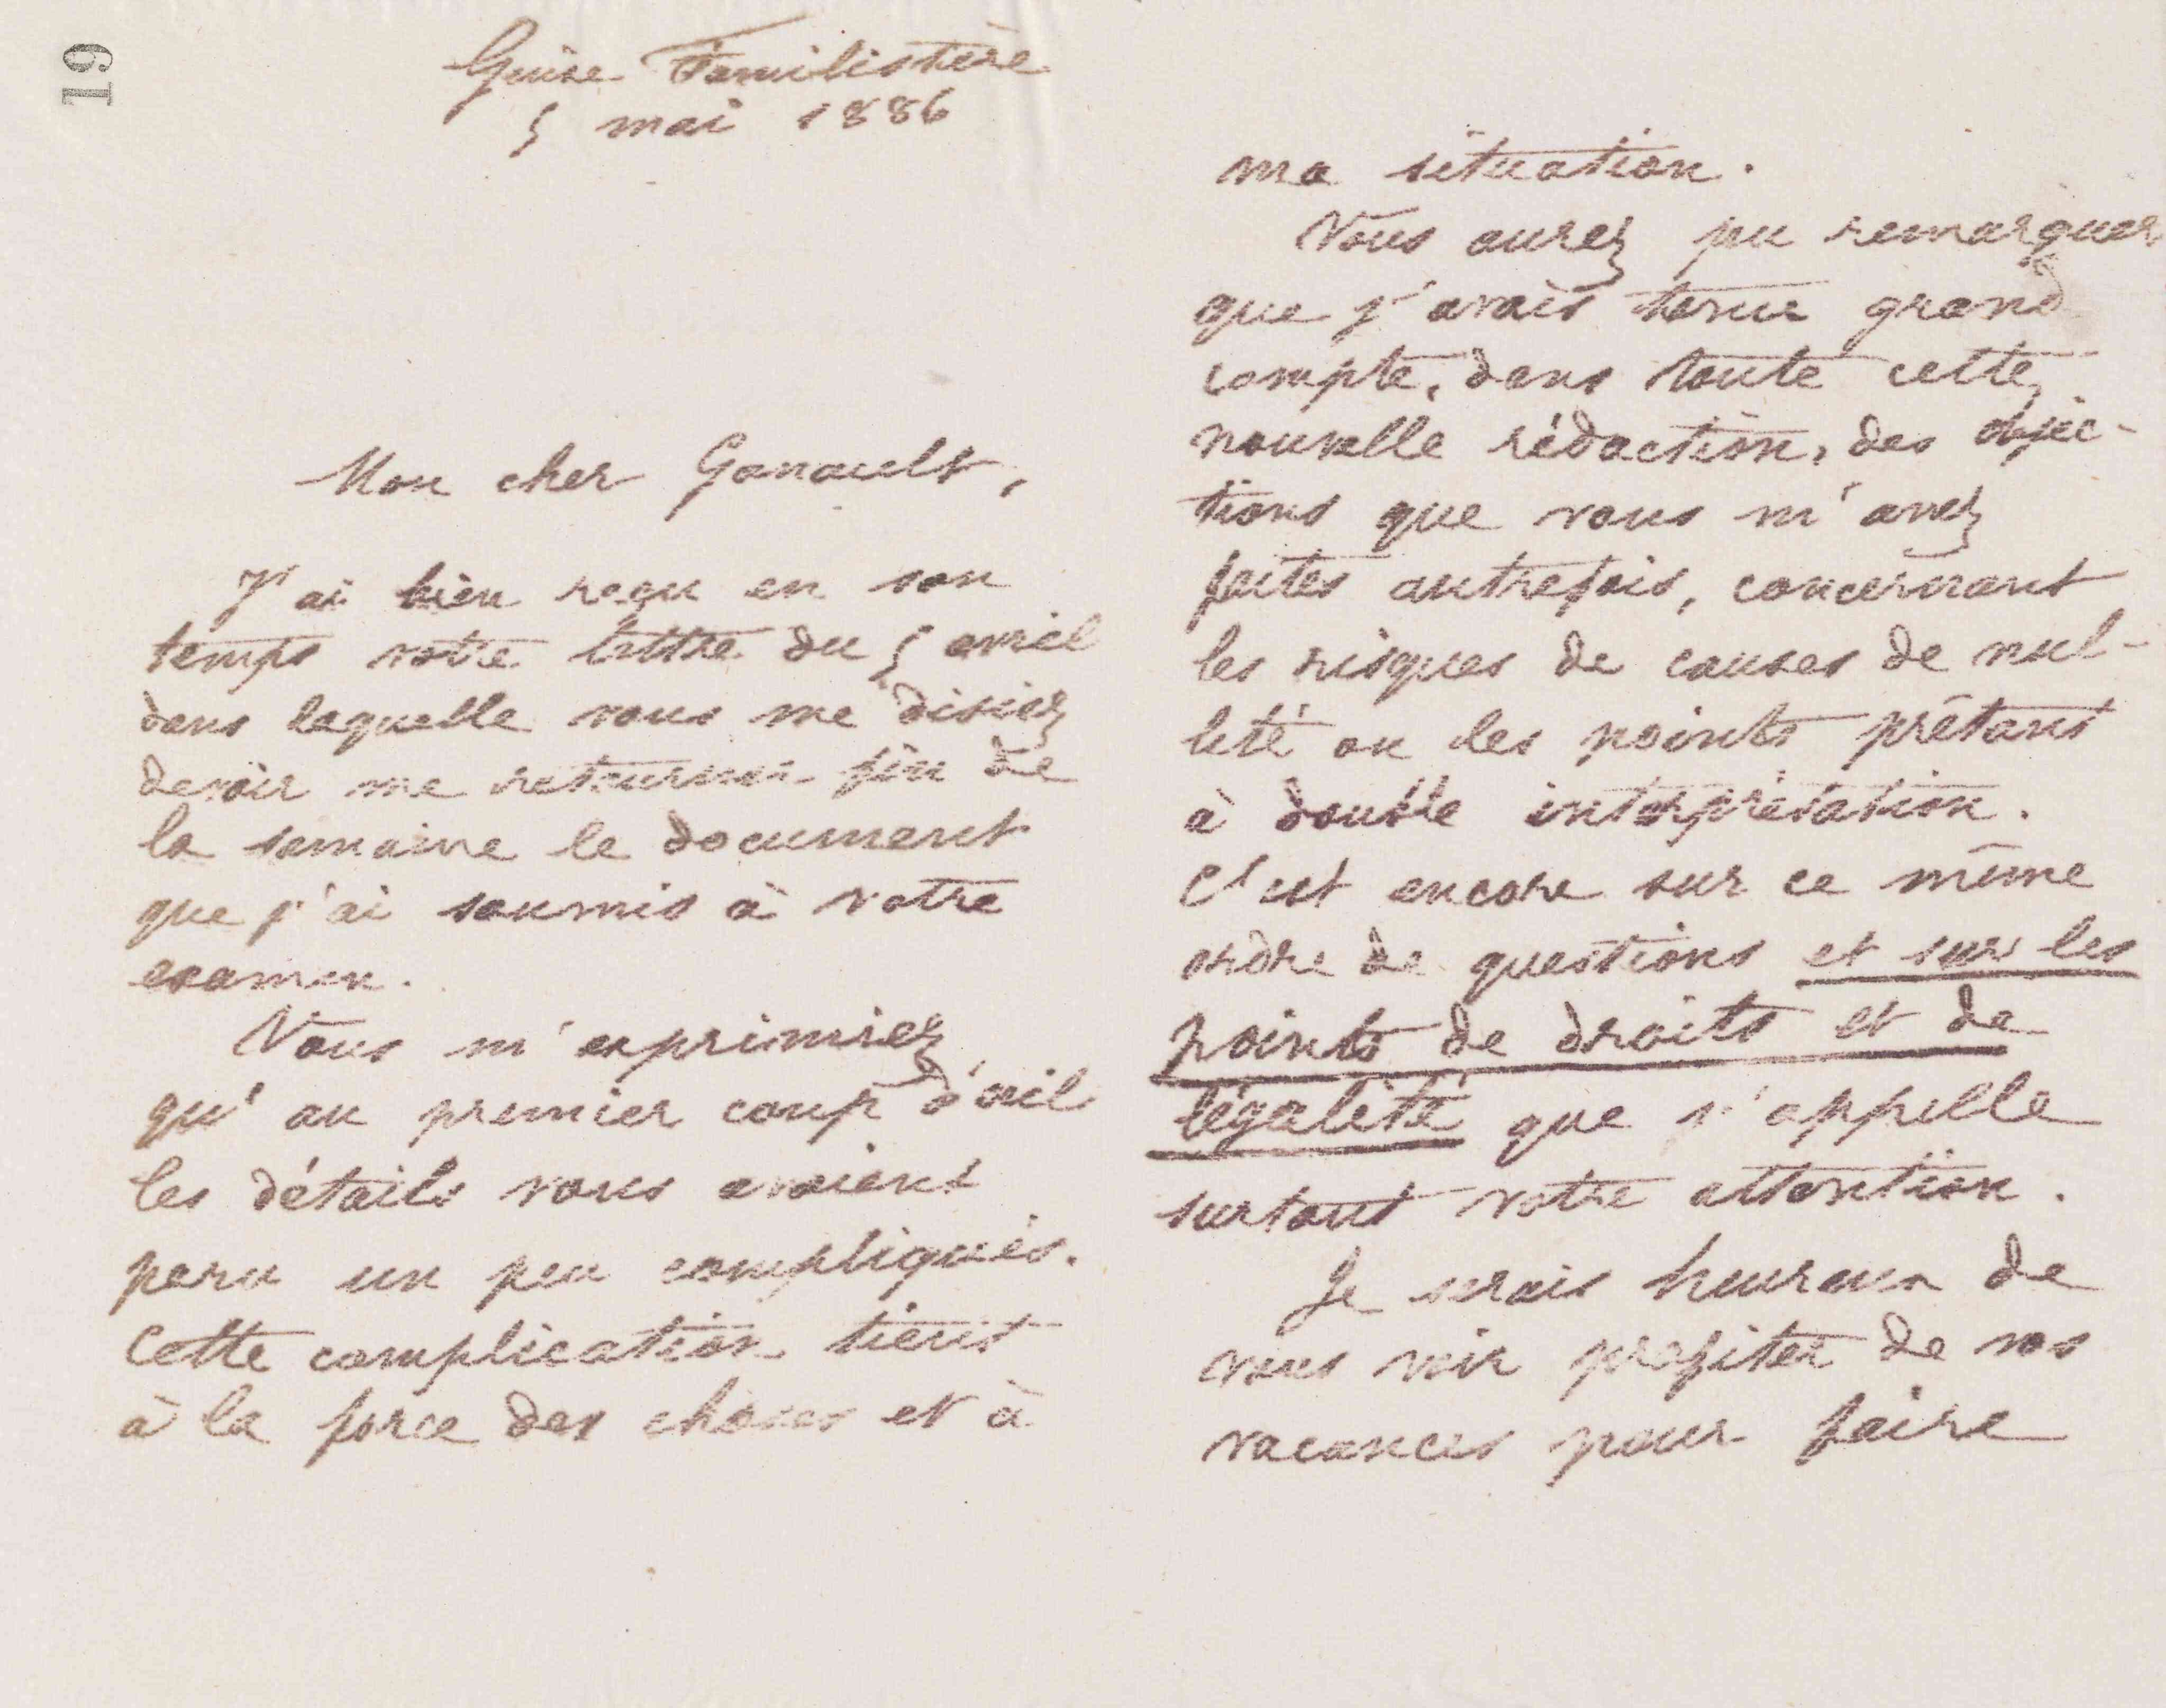 19
Guise Familistère
5 mai 1886
Mon cher Ganault,
J'ai bien reçu en son
temps votre lettre du 5 avril
dans laquelle vous me disiez
devoir me retourner fin de
la semaine le document
que j'ai soumis à votre
examen.
Vous m'exprimiez
qu'au premier coup d'œil
les détails vous avaient
paru un peu compliqués.
Cette complication tient
à la force des choses et à
ma situation.
Vous aurez pu remarquer
que j'avais tenu grand
compte, dans toute cette
nouvelle rédaction, des objec-
tions que vous m'avez
faites autrefois, concernant
les risques de causes de nul-
lité ou les points prêtant
à double interprétation.
C'est encore sur ce même
ordre de questions et sur les
points de droits et de
légalité que j'appelle
surtout votre attention.
Je serais heureux de
vous voir profiter de vos
vacances pour faire